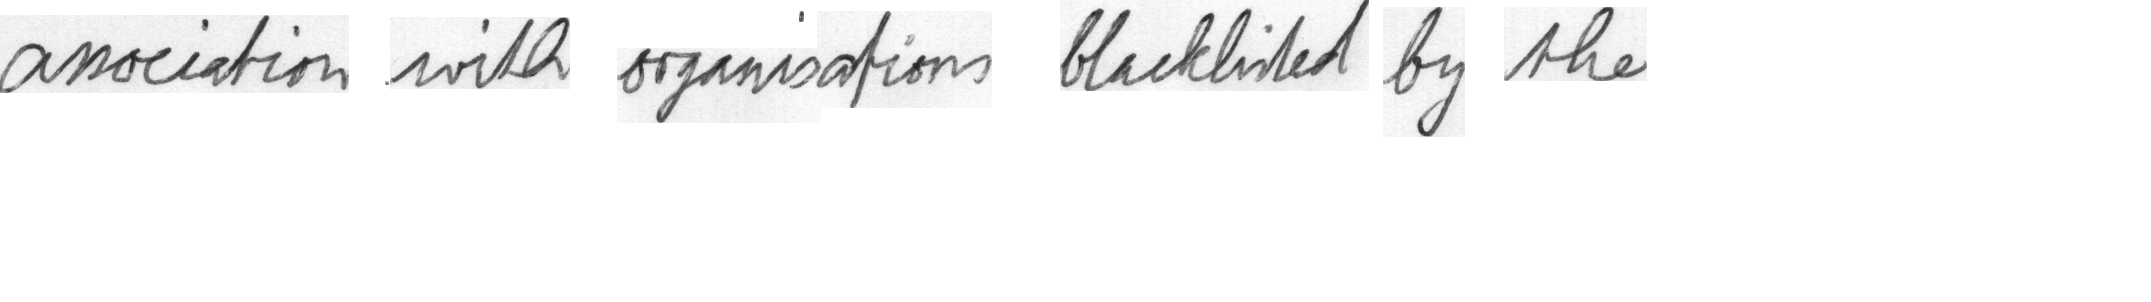 association with organisations blacklisted by the